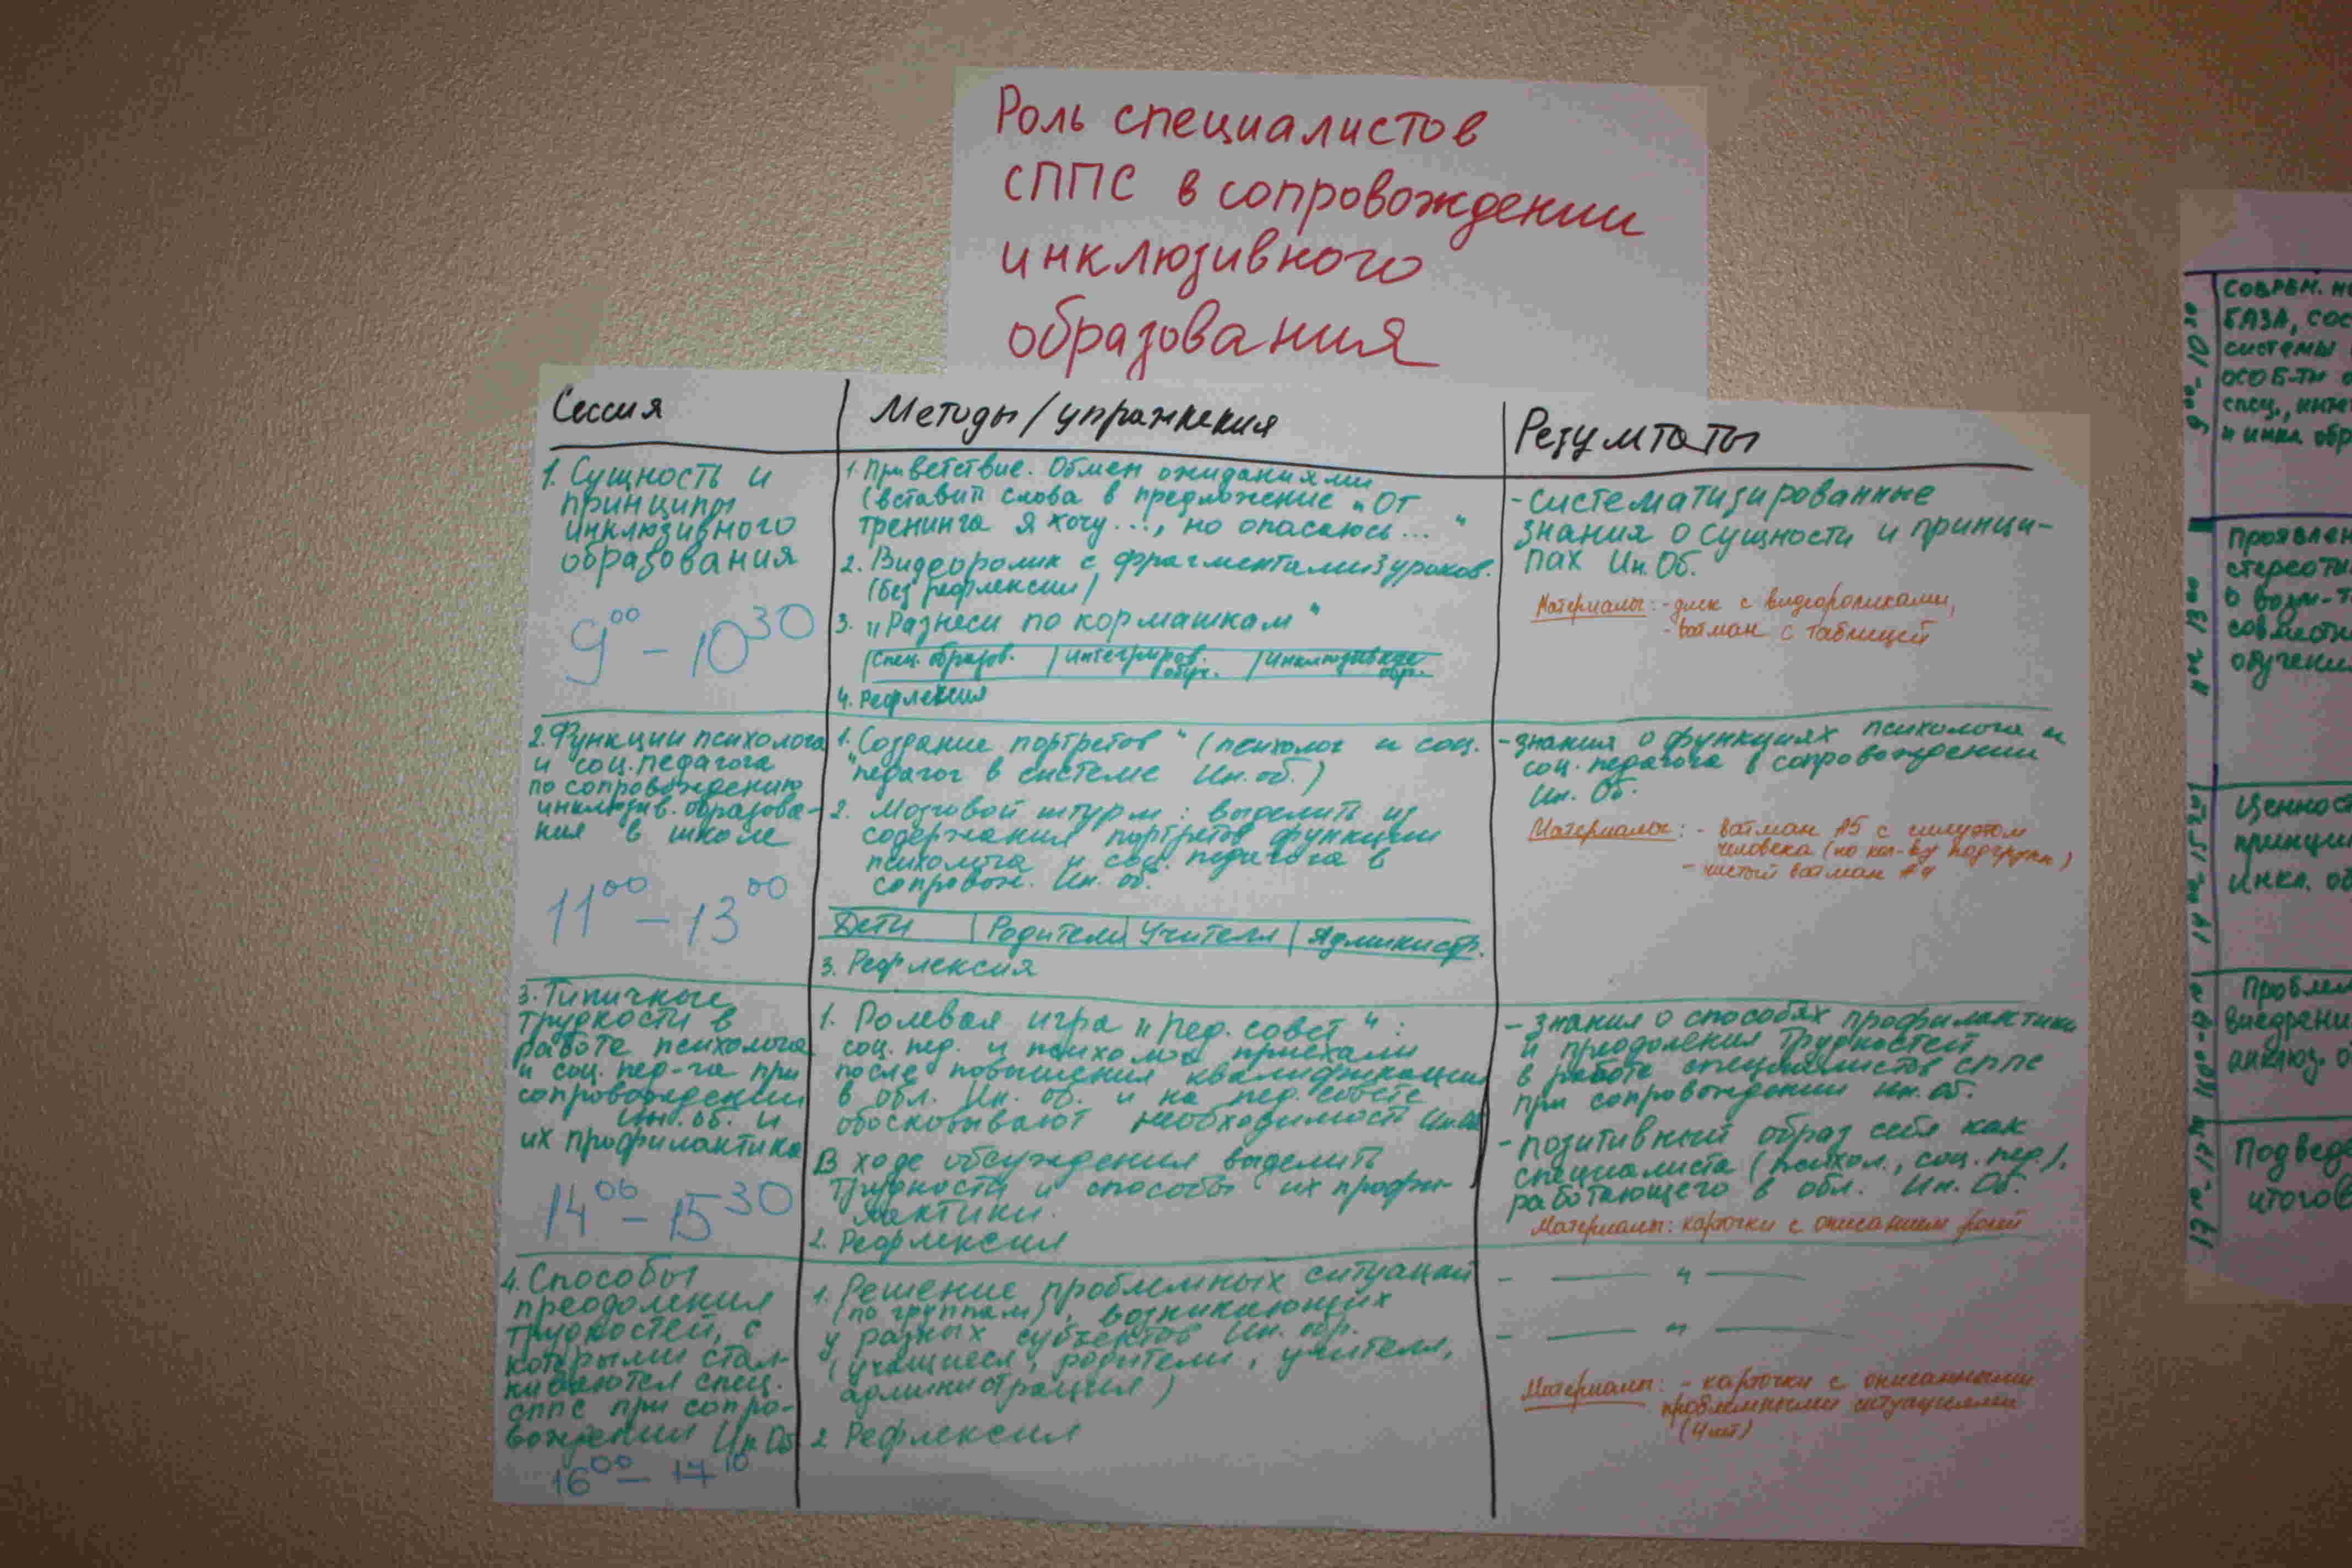 Роль специалистов
СППС в сопровождении
инклюзивного
образования
Сессия
Методы/упражнения
Результаты
1. Сущность и
принципы
инклюзивного
образования
9⁰⁰ - 10³⁰
1. Приветствие. Обмен ожиданиями
(вставит слова в предложение „От
тренинга я хочу..., но опасаюсь... "
2. Видеоролик с фрагментами уроков.
(без рефлексии)
3. „Разнеси по кормашкам"
Спец. образов. | Интегриров. обуч. | Инклюзивное обр.
4. Рефлексия
- систематизированные
знания о сущности и принци-
пах Ин. Об.
Материалы: - диск с видеороликами,
- ватман с таблицей
2. Функции психолога
и соц. педагога
по сопровождению
инклюзив. образова-
ния в школе
11⁰⁰ - 13⁰⁰
1. „Создание портретов" (психолог и соц.
педагог в системе Ин. об.)
2. Мозговой штурм: выделить из
содержания портретов функции
психолога и соц. педагога в
сопровож. Ин. об.
Дети | Родители | Учителя | Администр.
3. Рефлексия
- знания о функциях психолога и
соц. педагога в сопровождении
Ин. Об.
Материалы: - ватман А5 с силуэтом
человека (по кол-ву подгрупп)
- чистый ватман А4
3. Типичные
трудности в
работе психолога
и соц. пед-га при
сопровождении
Ин. об. и
их профилактика
14⁰⁰ - 15³⁰
1. Ролевая игра „Пед. совет":
соц. пед. и психолог приехали
после повышения квалификации
в обл. Ин. об. и на пед. совете
обосновывают необходимост Ин. Об.
В ходе обсуждения выделить
трудности и способы их профи-
лактики.
2. Рефлексия
- знания о способах профилактики
и преодоления трудностей
в работе специалистов СППС
при сопровождении Ин. об.
- позитивный образ себя как
специалиста (психол., соц. пед.),
работающего в обл. Ин. Об.
Материалы: карточки с описанием ролей
4. Способы
преодоления
трудностей, с
которыми стал-
киваются спец.
СППС при сопро-
вождении Ин Об
16⁰⁰ - 17¹⁰
1. Решение проблемных ситуаций
(по группам), возникающих
у разных субъектов Ин. обр.
(учащиеся, родители, учителя,
администрация)
2. Рефлексия
- — " —
- — " —
Материалы: - карточки с описанными
проблемными ситуациями
9⁰⁰-10³⁰
СОВРЕМ.
БАЗА,
системы
ОСОБ-ТИ
спец.,
и инкл. обр
11⁰⁰ 13⁰⁰
Проявлен
стереоти
о
совместн
обучени
Ценнос
принци
инкл. об
Проблем
внедрени
инклюз. о
Подведе
итогов